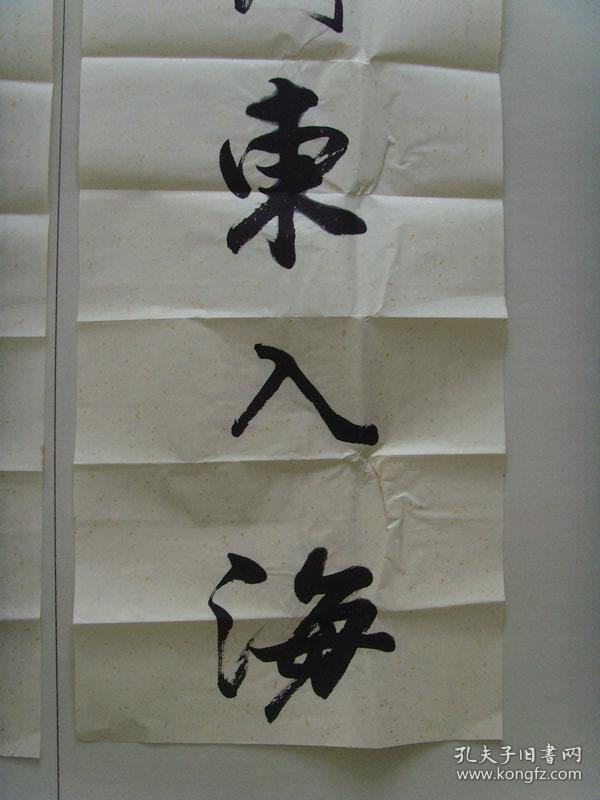 東入海
孔夫子旧書网
www.kongfz.com